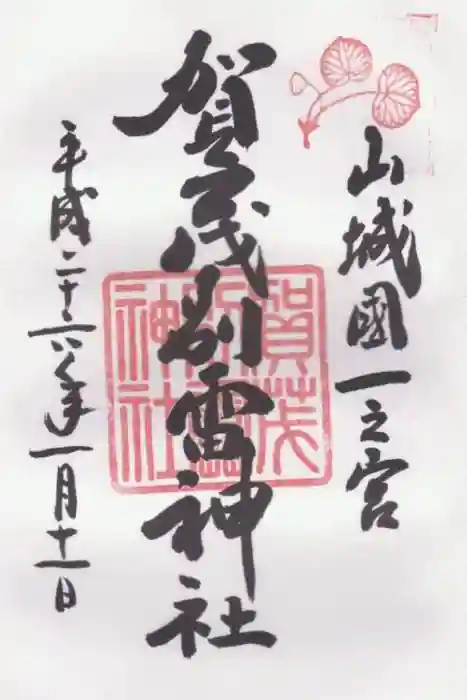 山城國一之宮
賀茂別雷神社
平成二十六年一月十一日
賀茂別雷神社